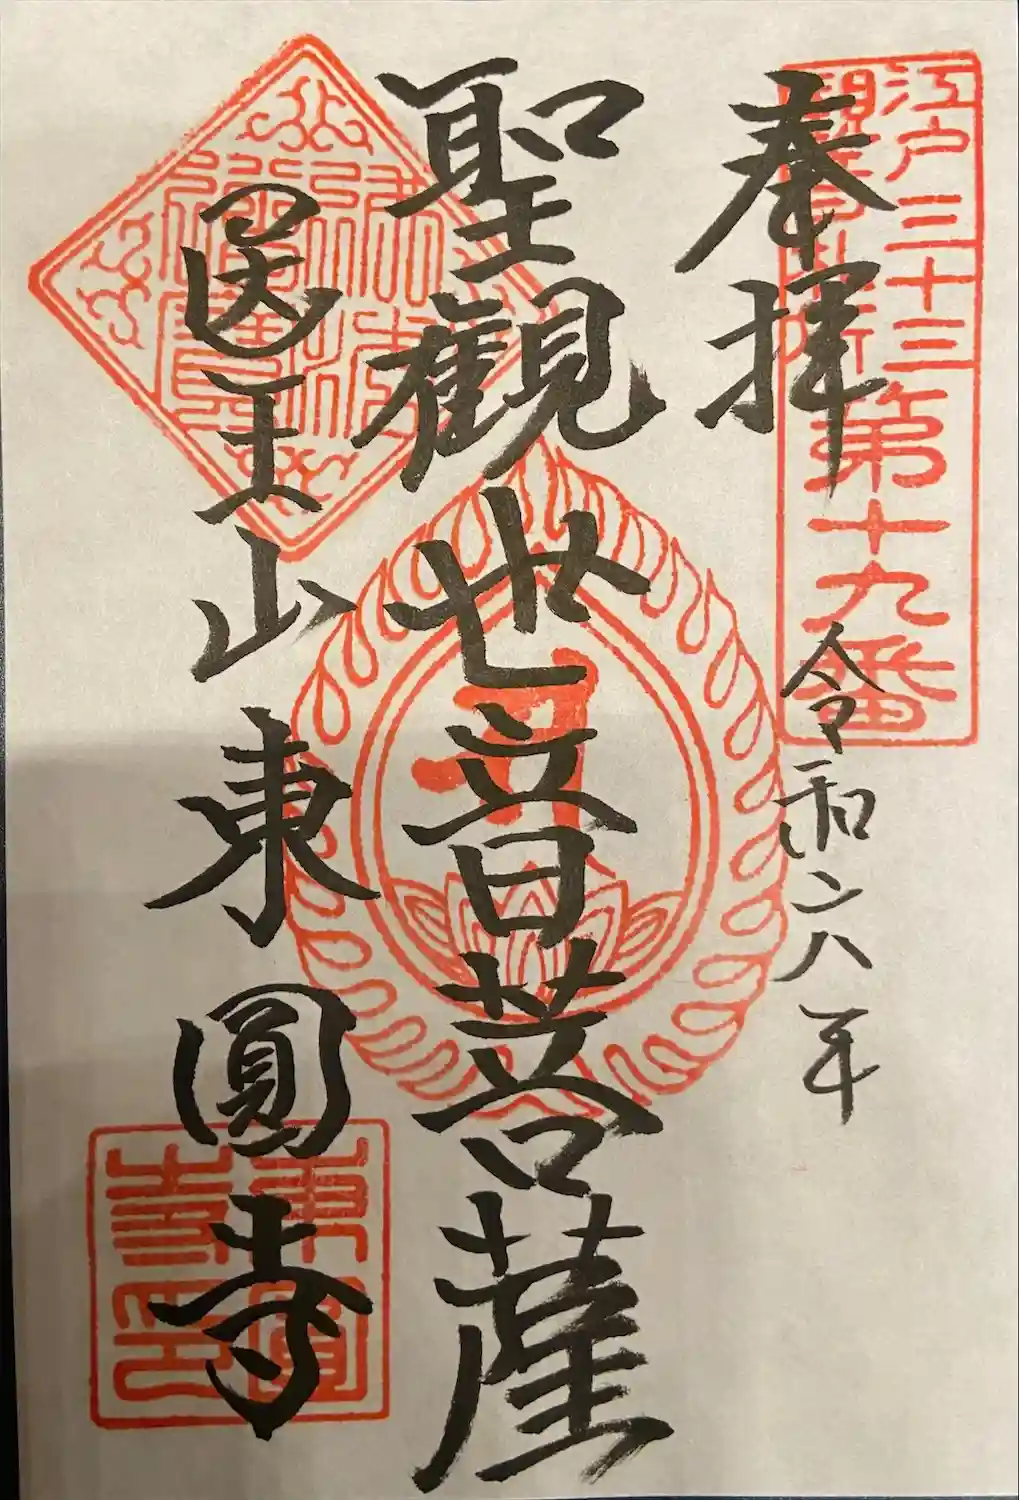 江戸三十三
観音札所第十九番
奉拝
令和六年
聖観世音菩薩
医王山東圓寺